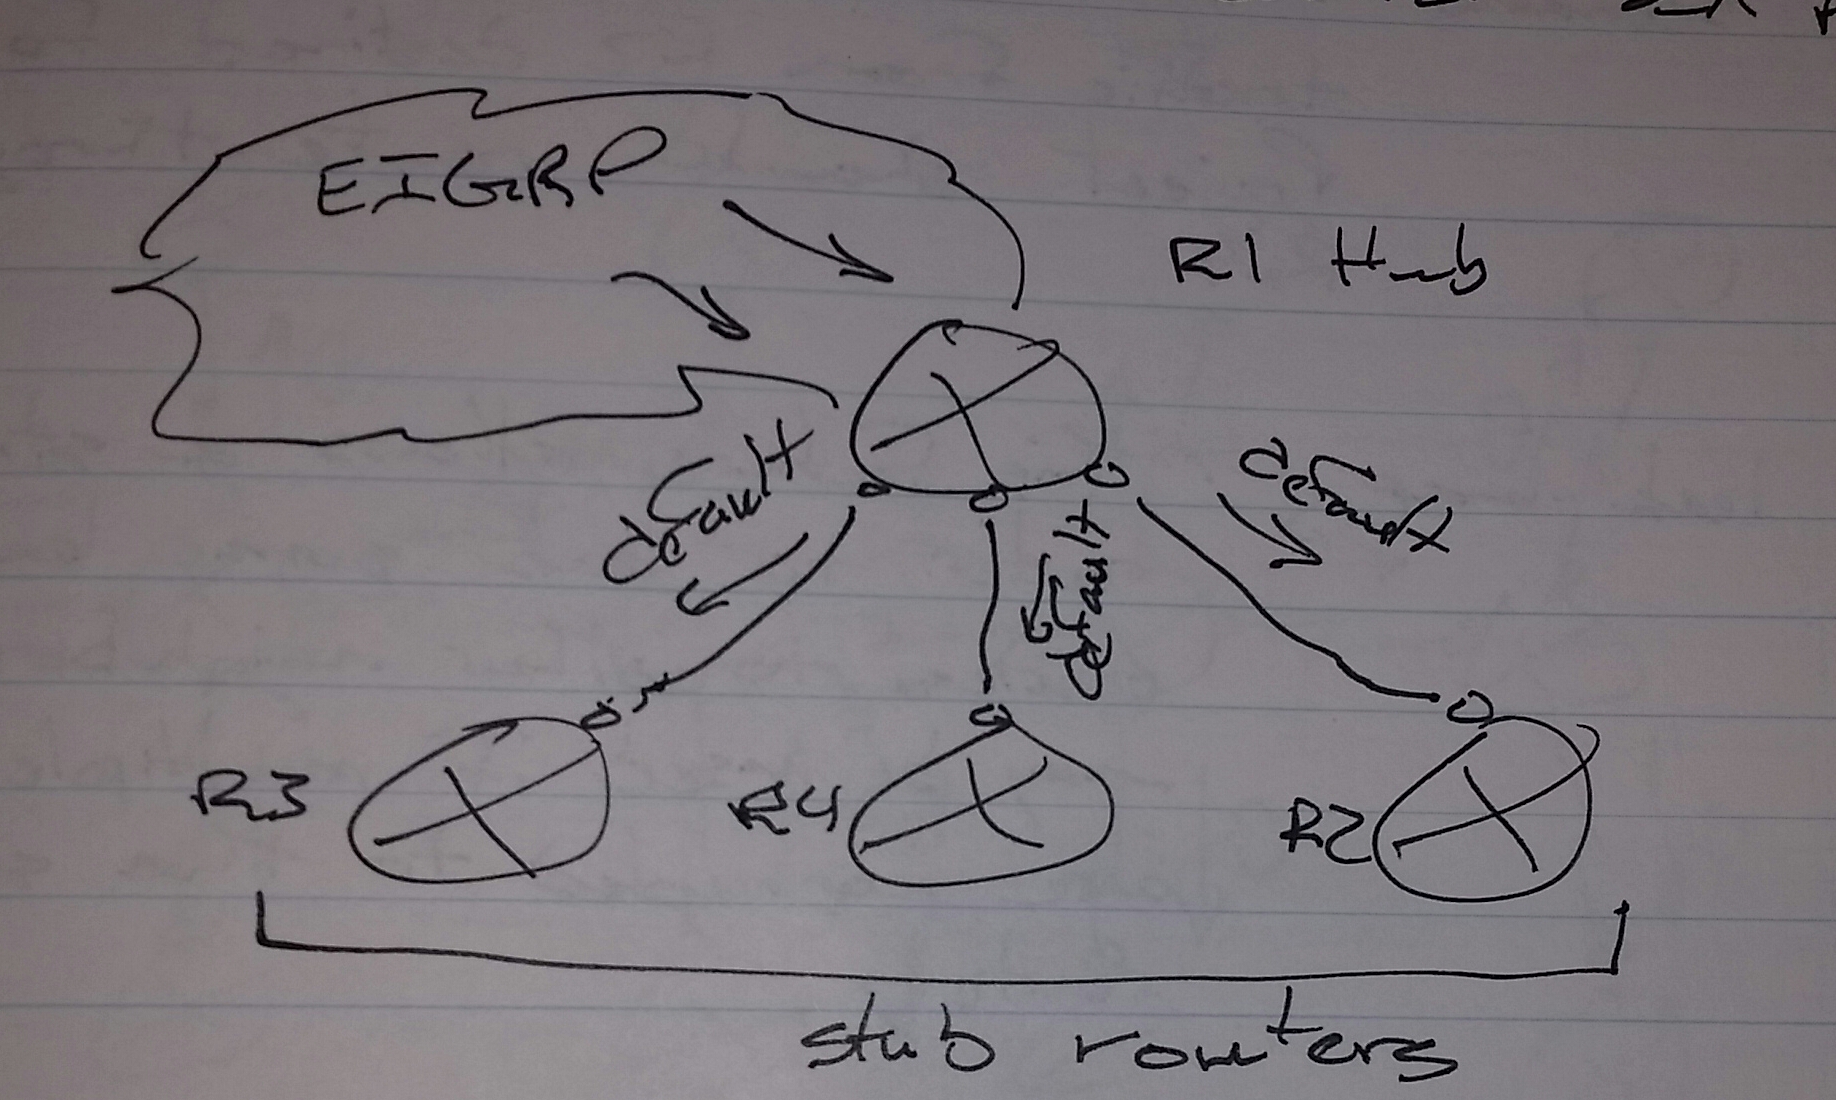 EIGRP
R1 Hub
default
default
default
R3
R4
R2
stub routers